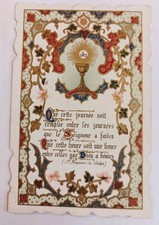 Que cette journée soit
comptée entre les journées
que le Seigneur a faites
Que cette heure soit une heure
entre celles que Dieu a bénies